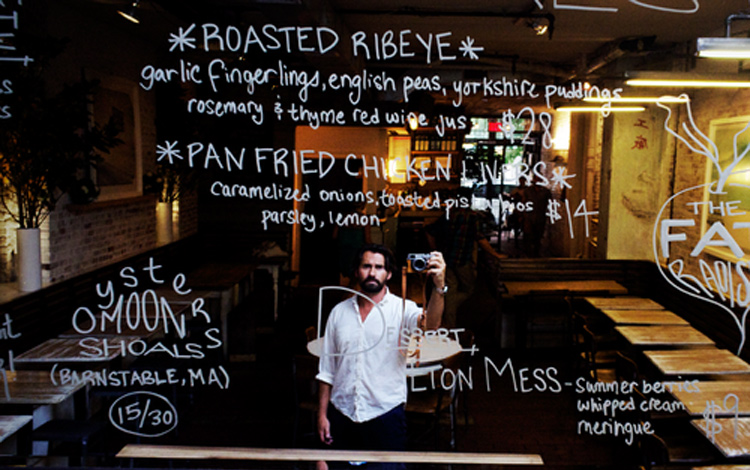 *ROASTED RIBEYE*
garlic fingerlings, english peas, yorkshire puddings
rosemary & thyme red wine jus $28
*PAN FRIED CHICKEN LIVERS*
caramelized onions, toasted pistachios $14
parsley, lemon
THE
FAT
RADISH
oyster
MOON
SHOALS
(BARNSTABLE, MA)
15/30
DESSERT
MESS - summer berries
whipped cream $9
meringue